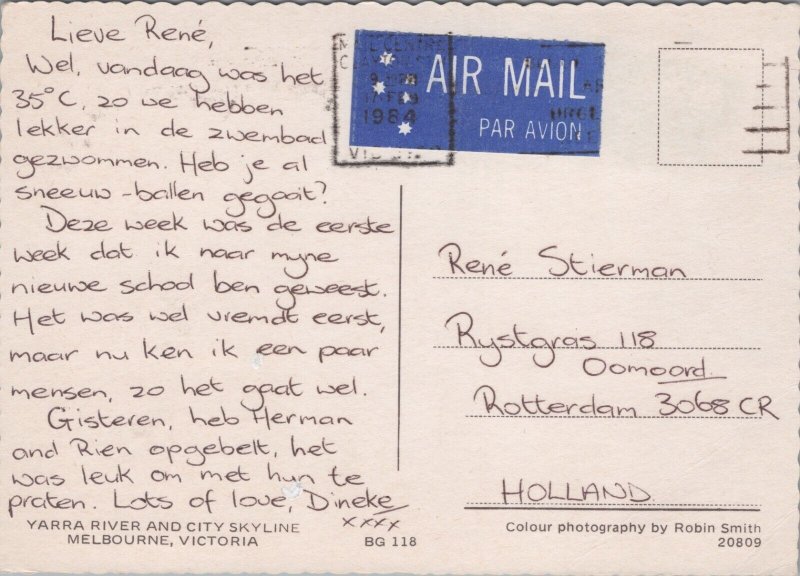 Lieve René,
Wel, vandaag was het
35°C, zo we hebben
lekker in de zwembad
gezwommen. Heb je al
sneeuw-ballen gegooit?
Deze week was de eerste
week dat ik naar myne
nieuwe school ben geweest.
Het was wel vremdt eerst,
maar nu ken ik een paar
mensen, zo het gaat wel.
Gisteren, heb Herman
and Rien opgebelt, het
was leuk om met hun te
praten. Lots of love, Dineke
xxxx
YARRA RIVER AND CITY SKYLINE
MELBOURNE, VICTORIA
BG 118
AIR MAIL
PAR AVION
1984
René Stierman
Rystgras 118
Oomoord
Rotterdam 3068 CR
HOLLAND
Colour photography by Robin Smith
20809